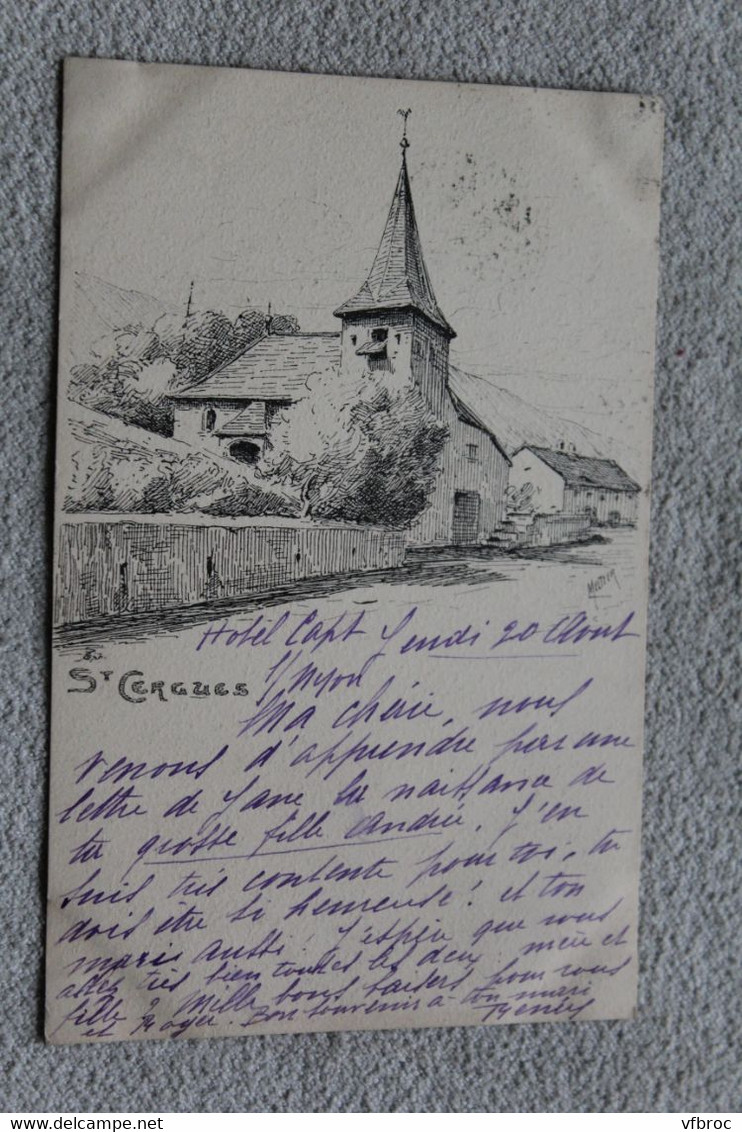 Hôtel Capt Jeudi 20 Aout
ST CERGUES
s/ Nyon
Ma chérie, nous
venons d'apprendre par une
lettre de Jane la naissance de
ta grosse fille Andrée. J'en
suis très contente pour toi, tu
dois être si heureuse! et ton
mari aussi! J'espère que vous
allez très bien toutes les deux mère et
fille? Mille bons baisers pour vous
et Bon souvenir à ton mari
vfbroc
www.delcampe.net